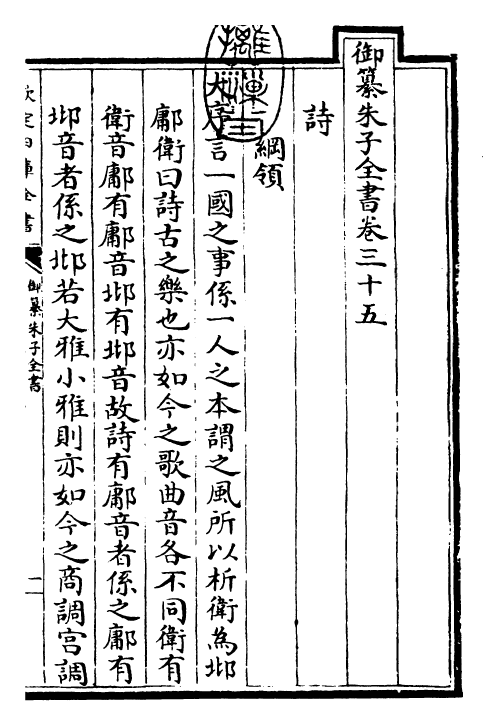 御纂朱子全書卷三十五
詩
綱領
大序言一國之事係一人之本謂之風所以析衛為邶
鄘衛曰詩古之樂也亦如今之歌曲音各不同衛有
衛音鄘有鄘音邶有邶音故詩有鄘音者係之鄘有
邶音者係之邶若大雅小雅則亦如今之商調宮調
欽定四庫全書
御纂朱子全書
一